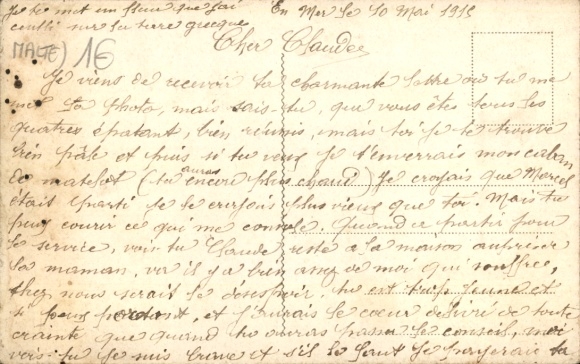 Je te met un fleur que j'ai
cueilli sur la terre grecque
En Mer le 10 Mai 1915
MALTE) 16
Cher Claude
Je viens de recevoir ta charmante lettre ou tu me
met ta photo, mais sais-tu, que vous êtes tous les
quatres épatant, bien réunis, mais toi je te trouve
bien pâle et puis si tu veux je t'enverrais mon caban
de matelot (tu auras encore plus chaud) Je croyais que Marcel
était parti je te croyais plus vieux que toi. Mais tu
peux courir ce qui me console. Quand a partir pour
le service, vois tu Claude reste a la maison
ta maman, va il y a bien assez de moi qui souffre,
chez nous serait le désespoir, tu est trop jeune et
si pourtant, et j'aurais le coeur délivré de toute
crainte que quand tu auras passé le conseil, moi
vois-tu je suis brave et s'il le faut je